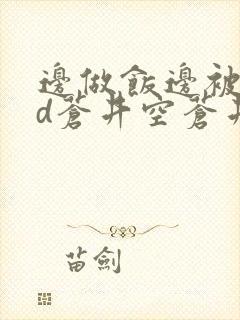 邊做飯邊被
d蒼井空蒼井
苗劍